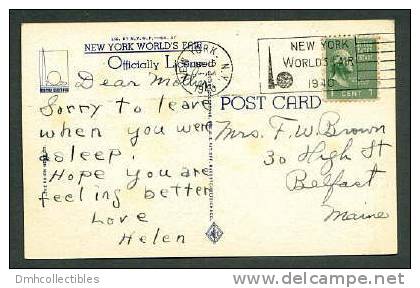 NEW YORK WORLD'S FAIR
Officially Licensed
NEW YORK
WORLD'S FAIR
1940
1 CENT 1
POST CARD
Dear Mother
Sorry to leave
when you were
asleep.
Hope you are
feeling better
Love
Helen
Mrs. F.W. Brown
30 High St
Belfast
Maine
Dmhcollectibles
delcampe.net